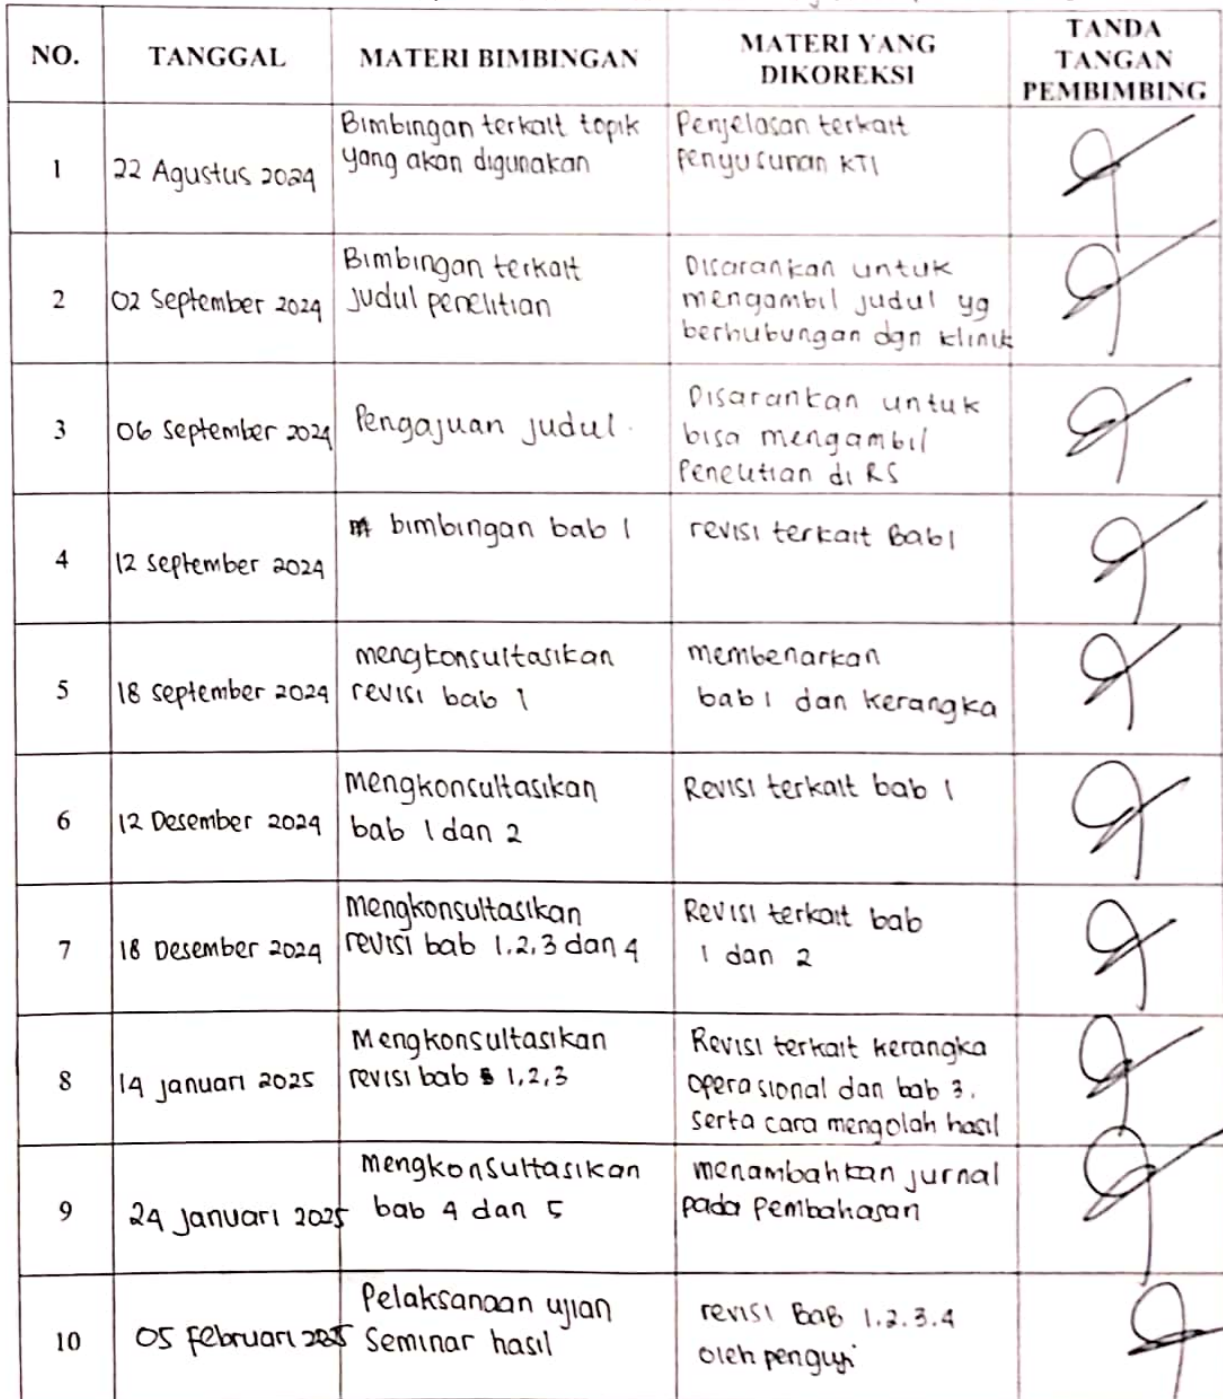 NO.
TANGGAL
MATERI BIMBINGAN
MATERI YANG
DIKOREKSI
TANDA
TANGAN
PEMBIMBING
1
22 Agustus 2024
Bimbingan terkait topik
yang akan digunakan
Penjelasan terkait
Penyusunan KTI
2
02 September 2024
Bimbingan terkait
Judul penelitian
Disarankan untuk
mengambil judul yg
berhubungan dgn klinik
3
06 September 2024
Pengajuan judul.
Disarankan untuk
bisa mengambil
Penelitian di RS
4
12 September 2024
bimbingan bab 1
revisi terkait Bab 1
5
18 September 2024
mengkonsultasikan
revisi bab 1
membenarkan
bab 1 dan kerangka
6
12 Desember 2024
Mengkonsultasikan
bab 1 dan 2
Revisi terkait bab 1
7
18 Desember 2024
Mengkonsultasikan
revisi bab 1.2.3 dan 4
Revisi terkait bab
1 dan 2
8
14 Januari 2025
Mengkonsultasikan
revisi bab 1,2,3
Revisi terkait kerangka
operasional dan bab 3.
serta cara mengolah hasil
9
24 Januari 2025
Mengkonsultasikan
bab 4 dan 5
menambahkan jurnal
pada Pembahasan
10
05 Februari 2025
Pelaksanaan ujian
Seminar hasil
revisi BaB 1.2.3.4
oleh penguji